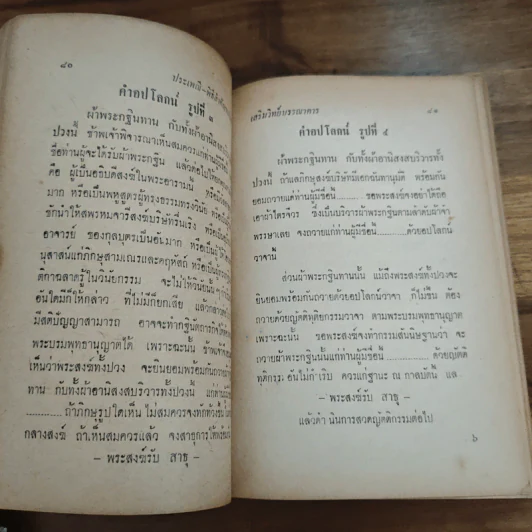 ๘๐
ประเพณี-พิธี
คำอปโลกน์ รูปที่ ๓
ผ้าพระกฐินทาน กับทั้งผ้าอานิสงส
ปวงนี้ ข้าพเจ้าพิจารณาเห็นสมควรแก่ท่านผู้
ชื่อท่านผู้จะได้รับผ้าพระกฐิน แล้วต่อไป
คือ ผู้เป็นอธิบดีสงฆ์ในพระอารามนี้ หรือ
มาก หรือเป็นพหูสูตรผู้ทรงธรรมทรงวินัย
ชักนำให้สพรหมจารีสงฆ์บริษัทรื่นเริง หรือ
อาจารย์ ของกุลบุตรเป็นอันมาก หรือเป็น
นุสาสน์แก่ภิกษุสามเณรและคฤหัสถ์ หรือ
ติกาฉลาดรู้ในวินัยกรรม จะไม่ให้วินัย
อันใดมีก็ให้กล่าว ที่ไม่มีก็ยกเสีย แล้วกล่าว
มีสติปัญญาสามารถ อาจจะทำกฐินัตถาร
พระบรมพุทธานุญาตได้ เพราะฉะนั้น ข้าพเจ้า
เห็นว่าพระสงฆ์ทั้งปวง จะยินยอมพร้อมกันถวาย
ทาน กับทั้งผ้าอานิสงสบริวารทั้งปวงนี้ แก่ท่าน
............ถ้าภิกษุรูปใดเห็น ไม่สมควรจงทักท้วงขึ้น
กลางสงฆ์ ถ้าเห็นสมควรแล้ว จงสาธุการให้พร้อม
- พระสงฆ์รับ สาธุ -
เสริมวิทย์บรรณาคาร ๘๑
คำอปโลกน์ รูปที่ ๔
ผ้าพระกฐินทาน กับทั้งผ้าอานิสงสบริวารทั้ง
ปวงนี้ ถ้าแลภิกษุสงฆ์บริษัทมีเอกฉันทานุมัติ พร้อมกัน
ยอมถวายแก่ท่านผู้มีชื่อนี้............ขอพระสงฆ์จงอย่าได้ถือ
เอาผ้าไตรจีวร ซึ่งเป็นบริวารผ้าพระกฐินตามลำดับผ้าจำ
พรรษาเลย จงถวายแก่ท่านผู้มีชื่อนี้............ด้วยอปโลกน์
วาจานี้
ส่วนผ้าพระกฐินทานนั้น แม้ถึงพระสงฆ์ทั้งปวงจะ
ยินยอมพร้อมกันถวายด้วยอปโลกน์วาจา ก็ไม่ขึ้น ต้อง
ถวายด้วยญัตติทุติยกรรมวาจา ตามพระบรมพุทธานุญาต
เพราะฉะนั้น ขอพระสงฆ์จงทำกรรมสันนิษฐานว่า จะ
ถวายผ้าพระกฐินนั้นแก่ท่านผู้มีชื่อนี้............ด้วยญัตติ
ทุติกรรม อันไม่กำเริบ ควรแก่ฐานะ ณ กาลบัดนี้ แล
- พระสงฆ์รับ สาธุ -
แล้วดำเนินการสวดญัตติกรรมต่อไป
๖